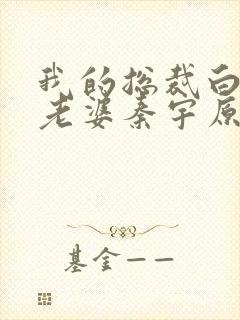 我的总裁白
老婆秦宇原
基金——